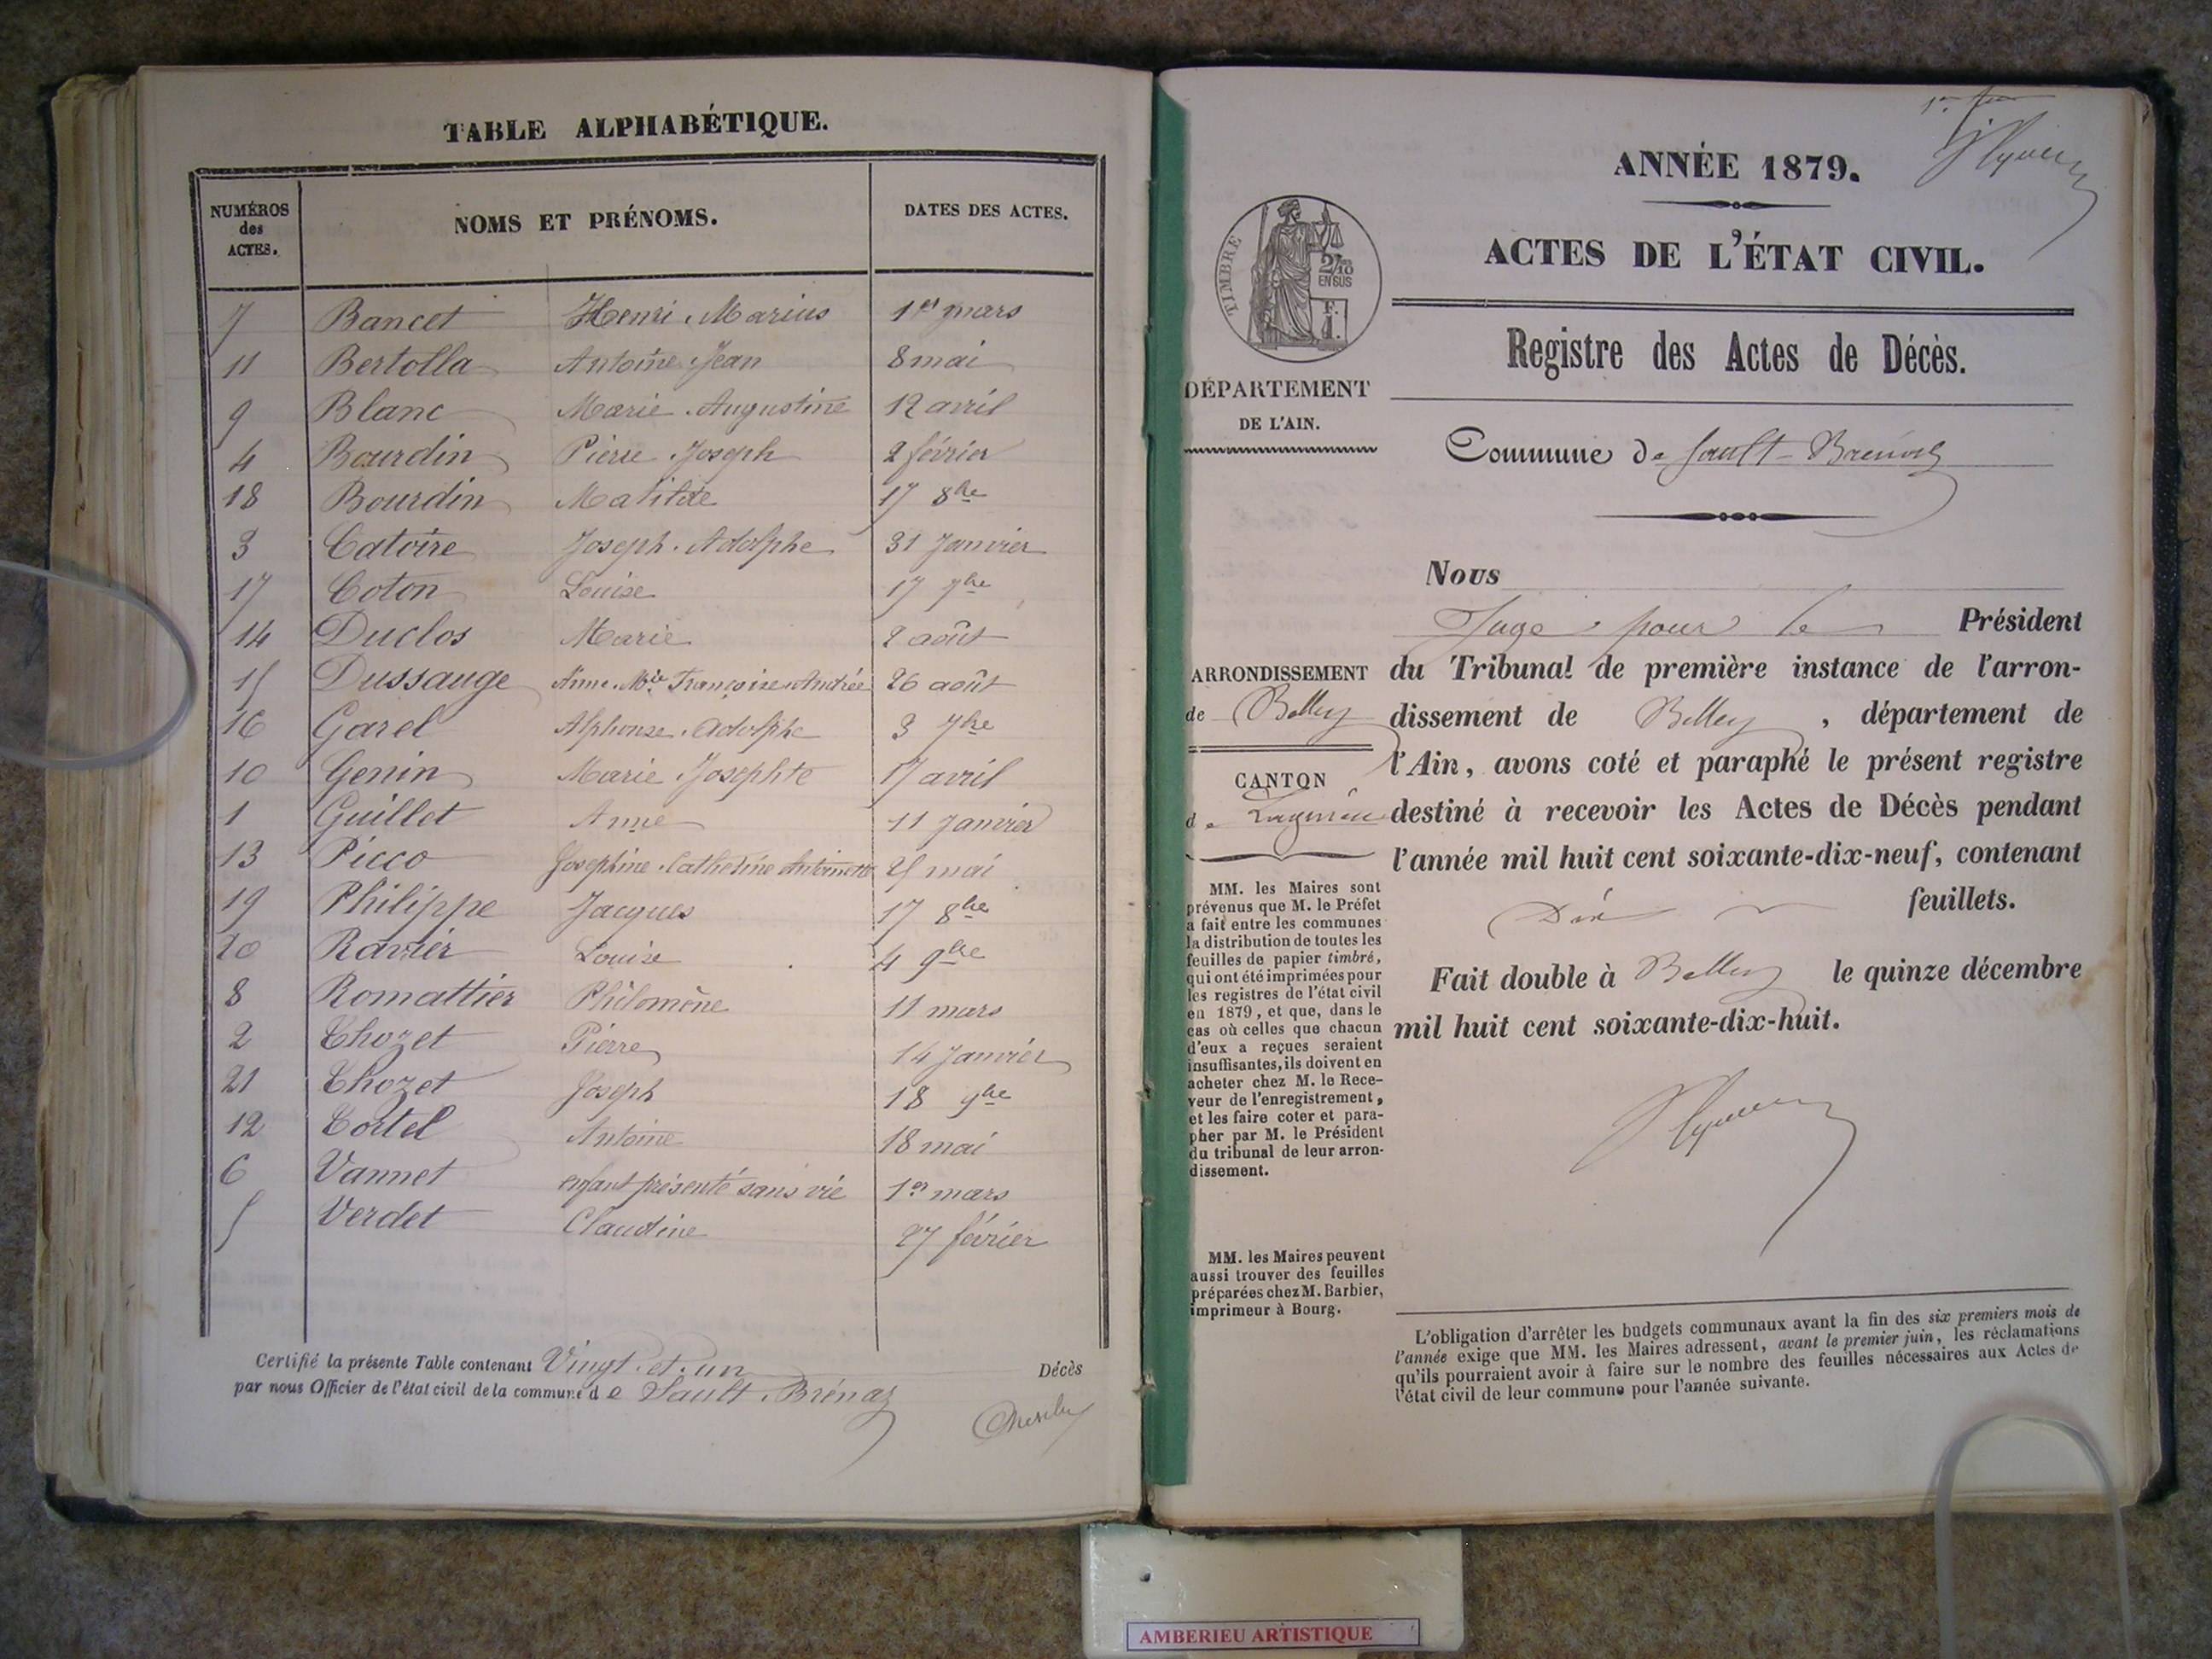 TABLE ALPHABÉTIQUE.
NUMÉROS des ACTES. NOMS ET PRÉNOMS. DATES DES ACTES.
7 Bancet Henri Marius 1er mars
11 Bertolla Antoine Jean 8 mai
9 Blanc Marie Augustine 12 avril
4 Bourdin Pierre Joseph 2 février
18 Bourdin Matilde 17 8bre
3 Catoire Joseph Adolphe 31 Janvier
17 Coton Louise 17 7bre
14 Duclos Marie 2 août
15 Dussauge Anne Mie Françoise Andrée 26 août
16 Garel Alphonse Adolphe 3 7bre
10 Genin Marie Josephte 17 avril
1 Guillot Anne 11 Janvier
13 Picco Joséphine Catherine Antoinette 25 mai
19 Philippe Jacques 17 8bre
20 Ravier Louise 4 9bre
8 Romattier Philomène 11 mars
2 Thozet Pierre 14 Janvier
21 Thozet Joseph 18 9bre
12 Tortel Antoine 18 mai
6 Vannet enfant présenté sans vie 1er mars
5 Verdet Claudine 27 février
Certifié la présente Table contenant Vingt-et-un Décès
par nous Officier de l'état civil de la commune de Sault-Brénaz
ANNÉE 1879.
ACTES DE L'ÉTAT CIVIL.
TIMBRE
2/10
EN SUS
F.
1.
Registre des Actes de Décès.
DÉPARTEMENT
DE L'AIN.
Commune de Sault-Brénaz
Nous
Juge pour le Président
du Tribunal de première instance de l'arron-
dissement de Belley, département de
l'Ain, avons coté et paraphé le présent registre
destiné à recevoir les Actes de Décès pendant
l'année mil huit cent soixante-dix-neuf, contenant
Dix feuillets.
Fait double à Belley le quinze décembre
mil huit cent soixante-dix-huit.
ARRONDISSEMENT
de Belley
CANTON
de Lagnieu
MM. les Maires sont
prévenus que M. le Préfet
a fait entre les communes
la distribution de toutes les
feuilles de papier timbré,
qui ont été imprimées pour
les registres de l'état civil
en 1879, et que, dans le
cas où celles que chacun
d'eux a reçues seraient
insuffisantes, ils doivent en
acheter chez M. le Rece-
veur de l'enregistrement,
et les faire coter et para-
pher par M. le Président
du tribunal de leur arron-
dissement.
MM. les Maires peuvent
aussi trouver des feuilles
préparées chez M. Barbier,
imprimeur à Bourg.
L'obligation d'arrêter les budgets communaux avant la fin des six premiers mois de
l'année exige que MM. les Maires adressent, avant le premier juin, les réclamations
qu'ils pourraient avoir à faire sur le nombre des feuilles nécessaires aux Actes de
l'état civil de leur commune pour l'année suivante.
AMBERIEU ARTISTIQUE